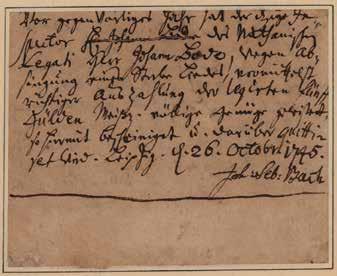 Vor gegenwärtiges Jahr hat der itzige Exe-
cutor des Nathanischen
Legati Herr Johann Bose, wegen Ab-
singung eines Sterbe Liedes, vermittelst
richtiger Auszahlung der legirten fünff
Gülden Meißn. völlige Genüge geleistet,
so hiermit bescheiniget u. darüber quitti-
ret wird. Leipzig. d. 26. Octobr. 1745.
Joh. Seb. Bach